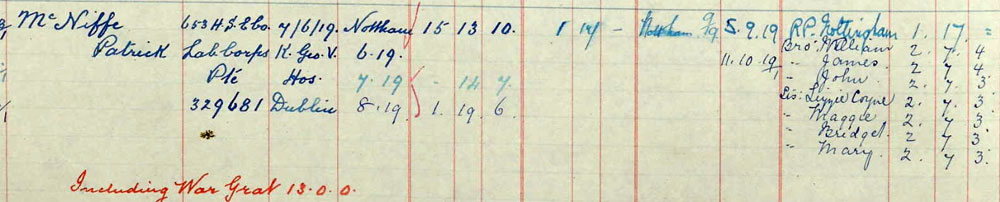 Mc Niffe 653 H.S. Ebo. 7/6/19. Nottham 15 13 10. 1 14 - Nottham 9/19 5.9.19 R.P. Nottingham 1. 17. =
Patrick Lab Corps K. Geo. V. 6.19. Bro: William 2. 7. 4
Pte Hos. 7.19 - 14 7 11.10.19 " James 2. 7 4.
" John 2. 7. 3
329681 Dublin 8.19 1. 19. 6. Sis: Lizzie Coyne 2. 7. 3.
" Maggie 2. 7 3.
" Bridget 2. 7 3
" Mary. 2. 7 3.
Including War Grat 13.0.0.